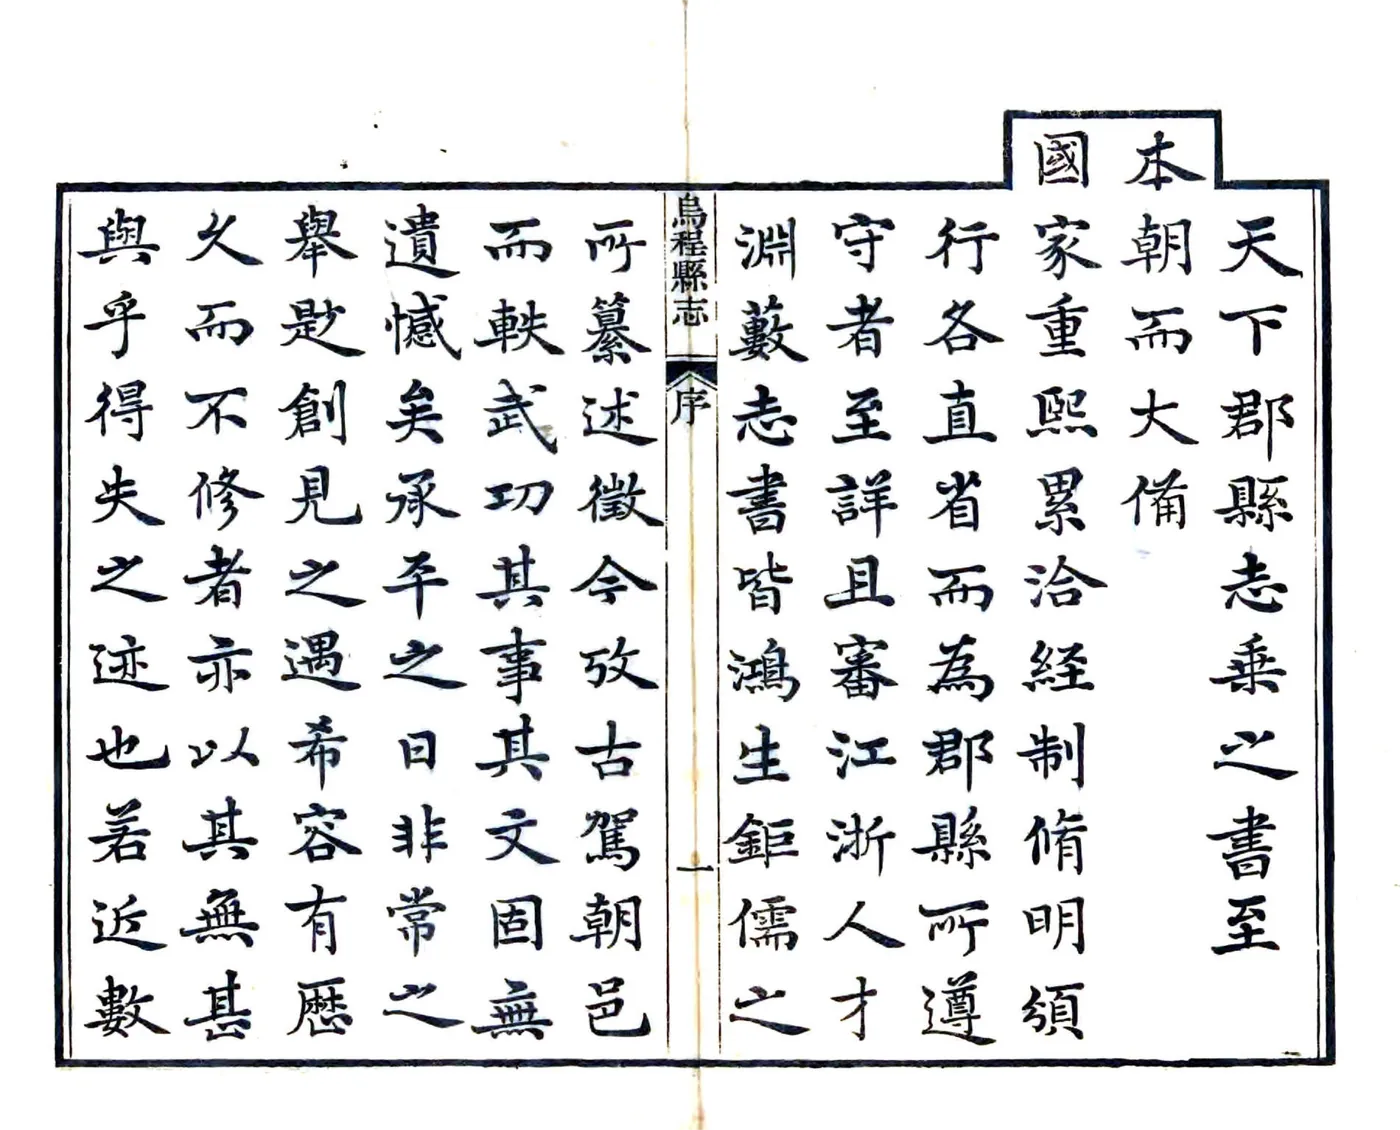 天下郡縣志乗之書至
本朝而大備
國家重熙累洽経制脩明頒
行各直省而為郡縣所遵
守者至詳且審江浙人才
淵藪志書皆鴻生鉅儒之
烏程縣志
序
一
所纂述徵今攷古駕朝邑
而軼武功其事其文固無
遺憾矣承平之日非常之
舉尟創見之遇希容有歷
久而不修者亦以其無甚
與乎得失之迹也若近數